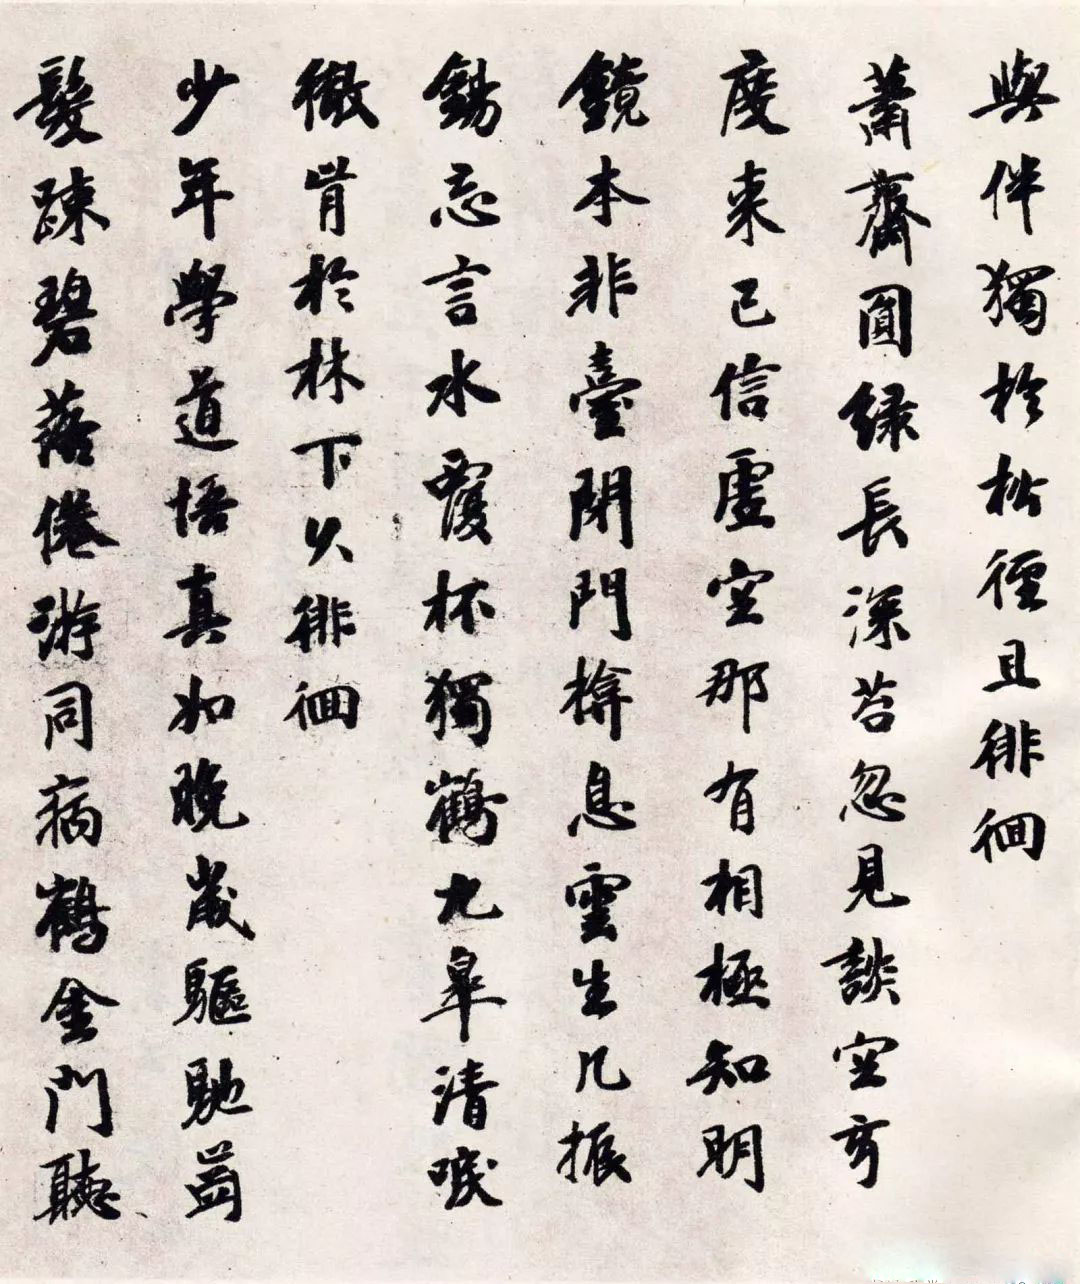 與伴獨於松徑且徘徊
蕭齋圓綠長深苔忽見談空育
度来已信虛空那有相極知明
鏡本非臺閉門揜息雲生几振
錫忘言水覆杯獨鶴九皋清唳
徹肯於林下久徘徊
少年學道悟真如晚歲驅馳齒
髮踈碧落倦游同病鶴金門聽